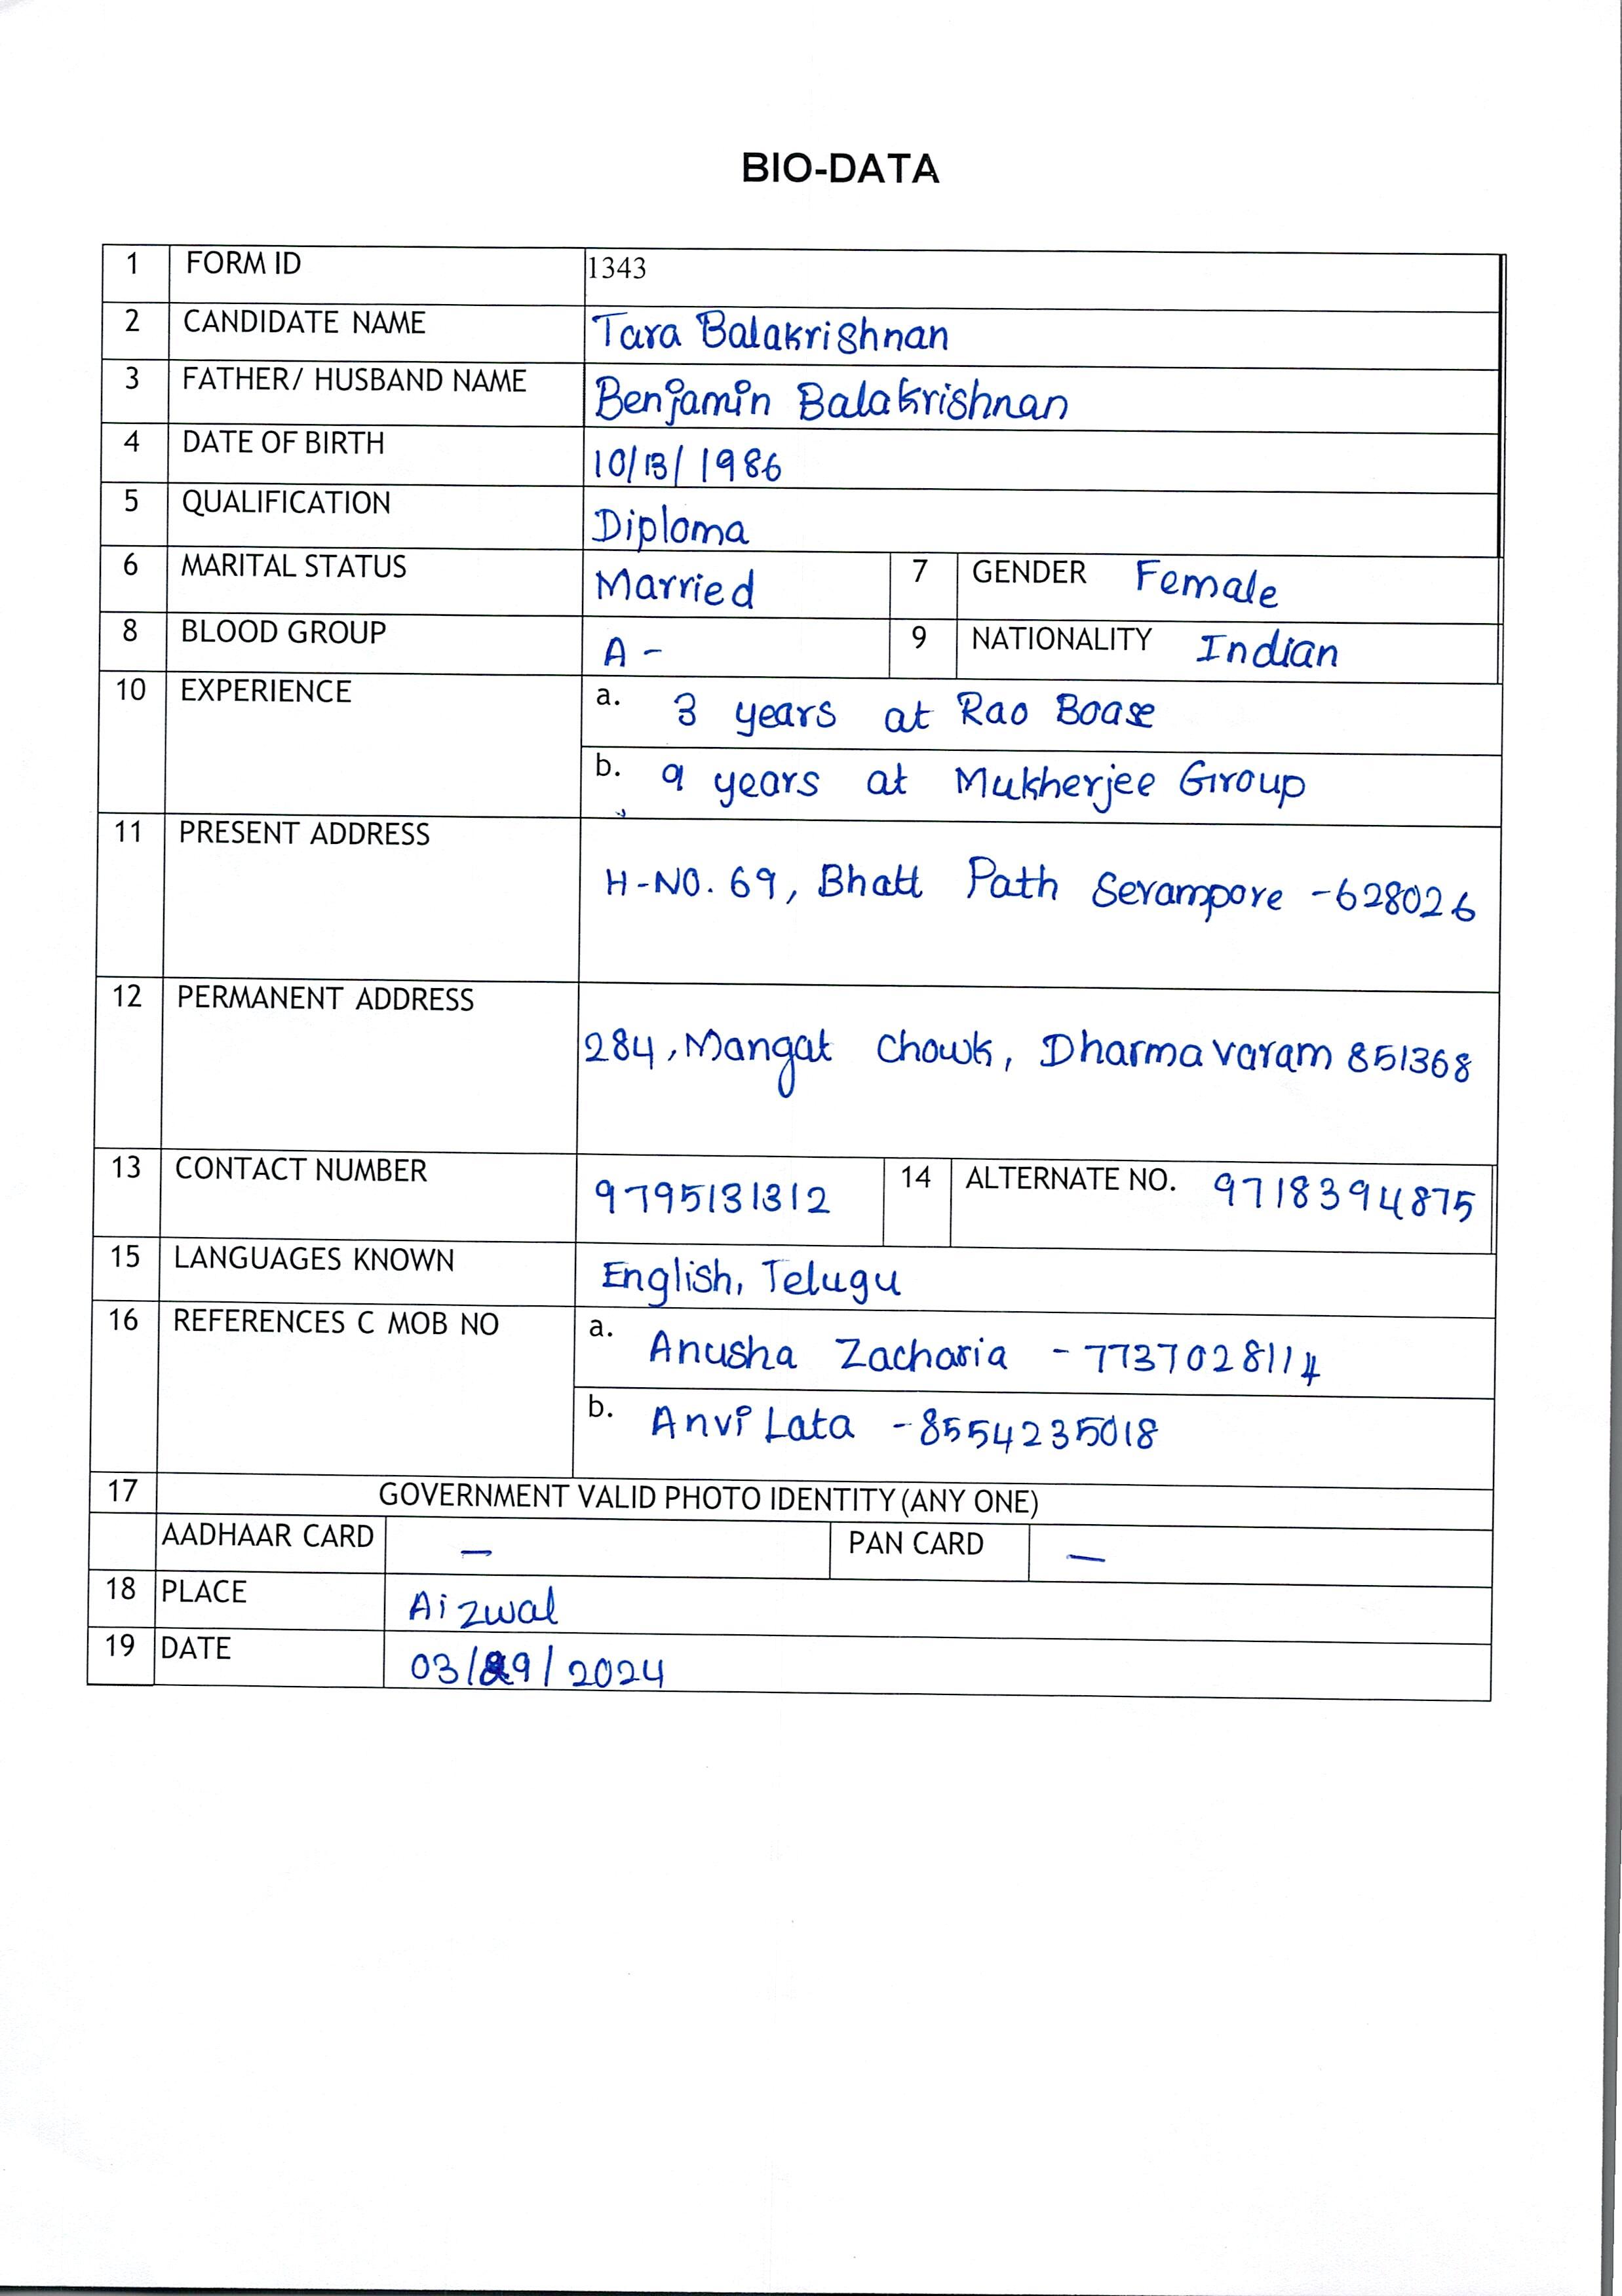 BIO-DATA
1 FORM ID 1343
2 CANDIDATE NAME Tara Balakrishnan
3 FATHER/ HUSBAND NAME Benjamin Balakrishnan
4 DATE OF BIRTH 10/13/1986
5 QUALIFICATION Diploma
6 MARITAL STATUS Married 7 GENDER Female
8 BLOOD GROUP A - 9 NATIONALITY Indian
10 EXPERIENCE a. 3 years at Rao Boase
b. 9 years at Mukherjee Group
11 PRESENT ADDRESS
H-NO. 69, Bhatt Path Serampore -628026
12 PERMANENT ADDRESS
284, Mangat Chowk, Dharmavaram 851368
13 CONTACT NUMBER 9795131312 14 ALTERNATE NO. 9718394875
15 LANGUAGES KNOWN English, Telugu
16 REFERENCES C MOB NO a. Anusha Zacharia - 7737028114
b. Anvi Lata - 8554235018
17 GOVERNMENT VALID PHOTO IDENTITY (ANY ONE)
AADHAAR CARD — PAN CARD —
18 PLACE Aizwal
19 DATE 03/29/2024